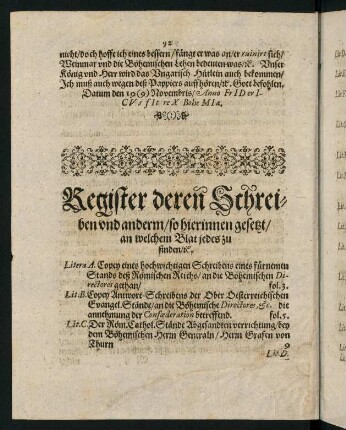 92
nicht/ doch hofft ich eines bessern/ fängt er was an/ er ruinirt sich/
Weinmar vnd die Böhemischen Lehen bedeuten was/ ꝛc. Vnser
König vnd Herr wird das Vngarisch Hütlein auch bekommen/
Ich muß auch wegen deß Pappiers auffhören/ ꝛc. Gott befohlen,
Datum den 19 (9) Novembris, Anno FrIDerI-
CVs sIt reX BoheMIa.
Register deren Schrei-
ben vnd anderm/ so hierinnen gesetzt/
an welchem Blat jedes zu
finden/ ꝛc.
Litera A. Copey eines hochwichtigen Schreibens eines fürnemen
Stands deß Römischen Reichs/ an die Böhemischen Di-
rectores gethan/ fol. 3.
Lit. B. Copey Antwort-Schreibens der Ober Oesterreichischen
Evangel. Stände/ an die Böhemische Directores, &c. die
annehmung der Confœderation betreffend. fol. 5.
Lit. C. Der Röm. Cathol. Stände Abgesandten verrichtung/ bey
dem Böhemischen Herrn Generaln/ Herrn Grafen von
Thurn 9
Lit. D.